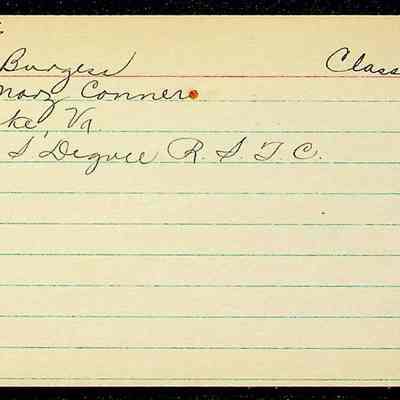 Burgess Class
Conner
ke, Va.
S Degree R. S. T. C.